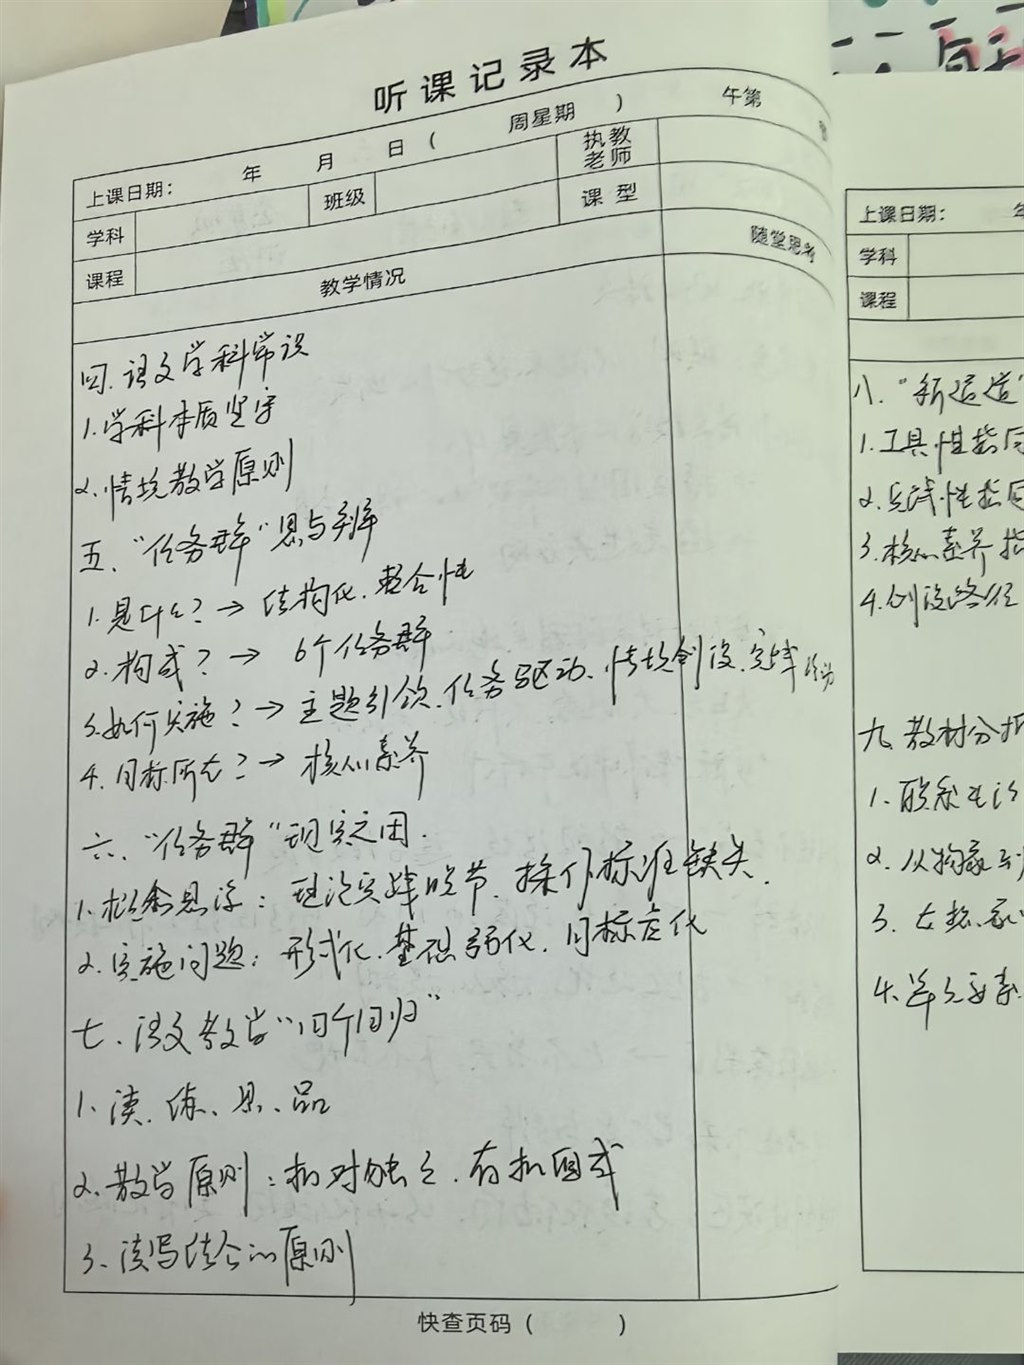 听课记录本
上课日期: 年 月 日( 周星期 ) 午第
学科 班级 执教老师
课程 课型
教学情况 随堂思考
四.语文学科常识
1.学科本质坚守
2.情境教学原则
五.“任务群”思与辨
1.是什么?→结构化.整合性
2.构成?→6个任务群
3.如何实施?→主题引领.任务驱动.情境创设.实践活动
4.目标所在?→核心素养
六.“任务群”现实之困.
1.概念悬浮:理论实践脱节.操作标准缺失.
2.实施问题:形式化.基础弱化.目标虚化
七.语文教学“四个回归”
1.读、练、思、品
2.教学原则:相对独立.有机
3.读写结合的原则
快查页码( )
上课日期:
学科
课程
八.“新
1.工具性指向
2.实践性指向
3.核心素养指
4.创设路径
九.教材分析
1.联系生活
2.从
3.
4.单元要素